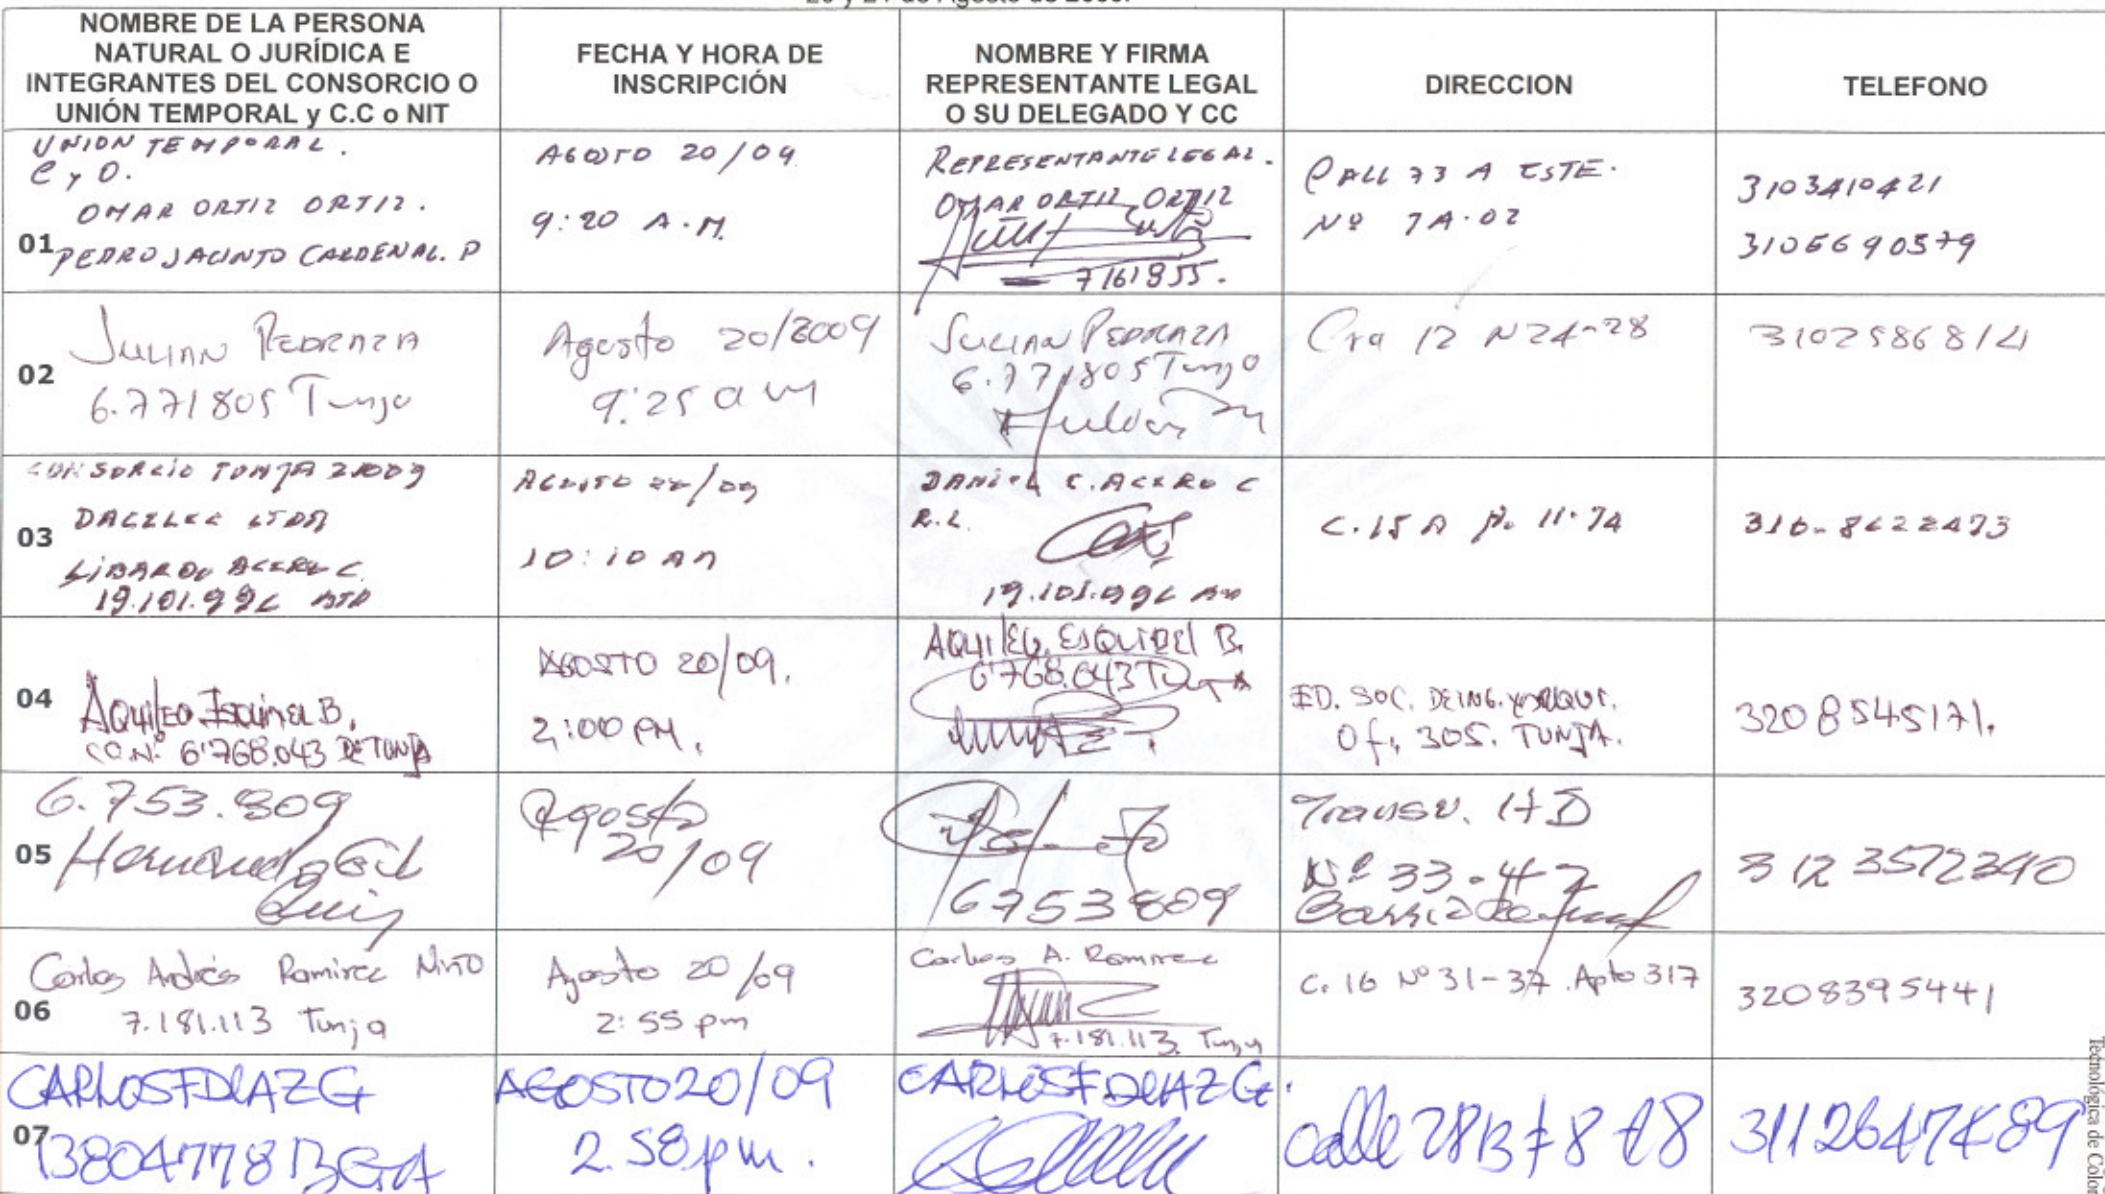 20 y 21 de Agosto de 2009.
NOMBRE DE LA PERSONA
NATURAL O JURÍDICA E
INTEGRANTES DEL CONSORCIO O
UNIÓN TEMPORAL y C.C o NIT
FECHA Y HORA DE
INSCRIPCIÓN
NOMBRE Y FIRMA
REPRESENTANTE LEGAL
O SU DELEGADO Y CC
DIRECCION
TELEFONO
01
UNION TEMPORAL.
C y O.
OMAR ORTIZ ORTIZ.
PEDRO JACINTO CARDENAL. P
AGOSTO 20/09
9:20 A.M.
REPRESENTANTE LEGAL.
OMAR ORTIZ ORTIZ
7161955.
CALL 73 A ESTE.
Nº 7A-02
3103410421
3106690579
02
JULIAN PEDRAZA
6.771805 Tunja
Agosto 20/2009
9:25 am
JULIAN PEDRAZA
6.771805 Tunja
Cra 12 N 24-28
3102586814
03
CONSORCIO TUNJA 2009
DACELEC LTDA
LIBARDO ACERO C.
19.101.996 BTA
AGOSTO 20/09
10:10 AM
DANIEL C. ACERO C
R.L.
19.101.996
C. 15 A No 11-74
310-8622473
04
AQUILEO ESQUIVEL B.
CC.Nº 6'768.043 DE TUNJA
AGOSTO 20/09.
2:00 PM.
AQUILEO ESQUIVEL B.
6'768.043 Tunja
ED. SOC. DE ING. Y ARQUT.
Of. 305. TUNJA.
3208545171.
05
6.753.809
Hernando Gil
Agosto
20/09
6753809
Transv. 17 D
Nº 33-47
Barrio
3123572340
06
Carlos Andrés Ramirez Niño
7.181.113 Tunja
Agosto 20/09
2:55 pm
Carlos A. Ramirez
7.181.113 Tunja
C. 16 Nº 31-37 Apto 317
3208395441
07
CARLOS F DIAZ G
13804778 BGA
AGOSTO 20/09
2.58 pm.
CARLOS F DIAZ G.
calle 28B # 8 18
3112647489
Tecnológica de Colom